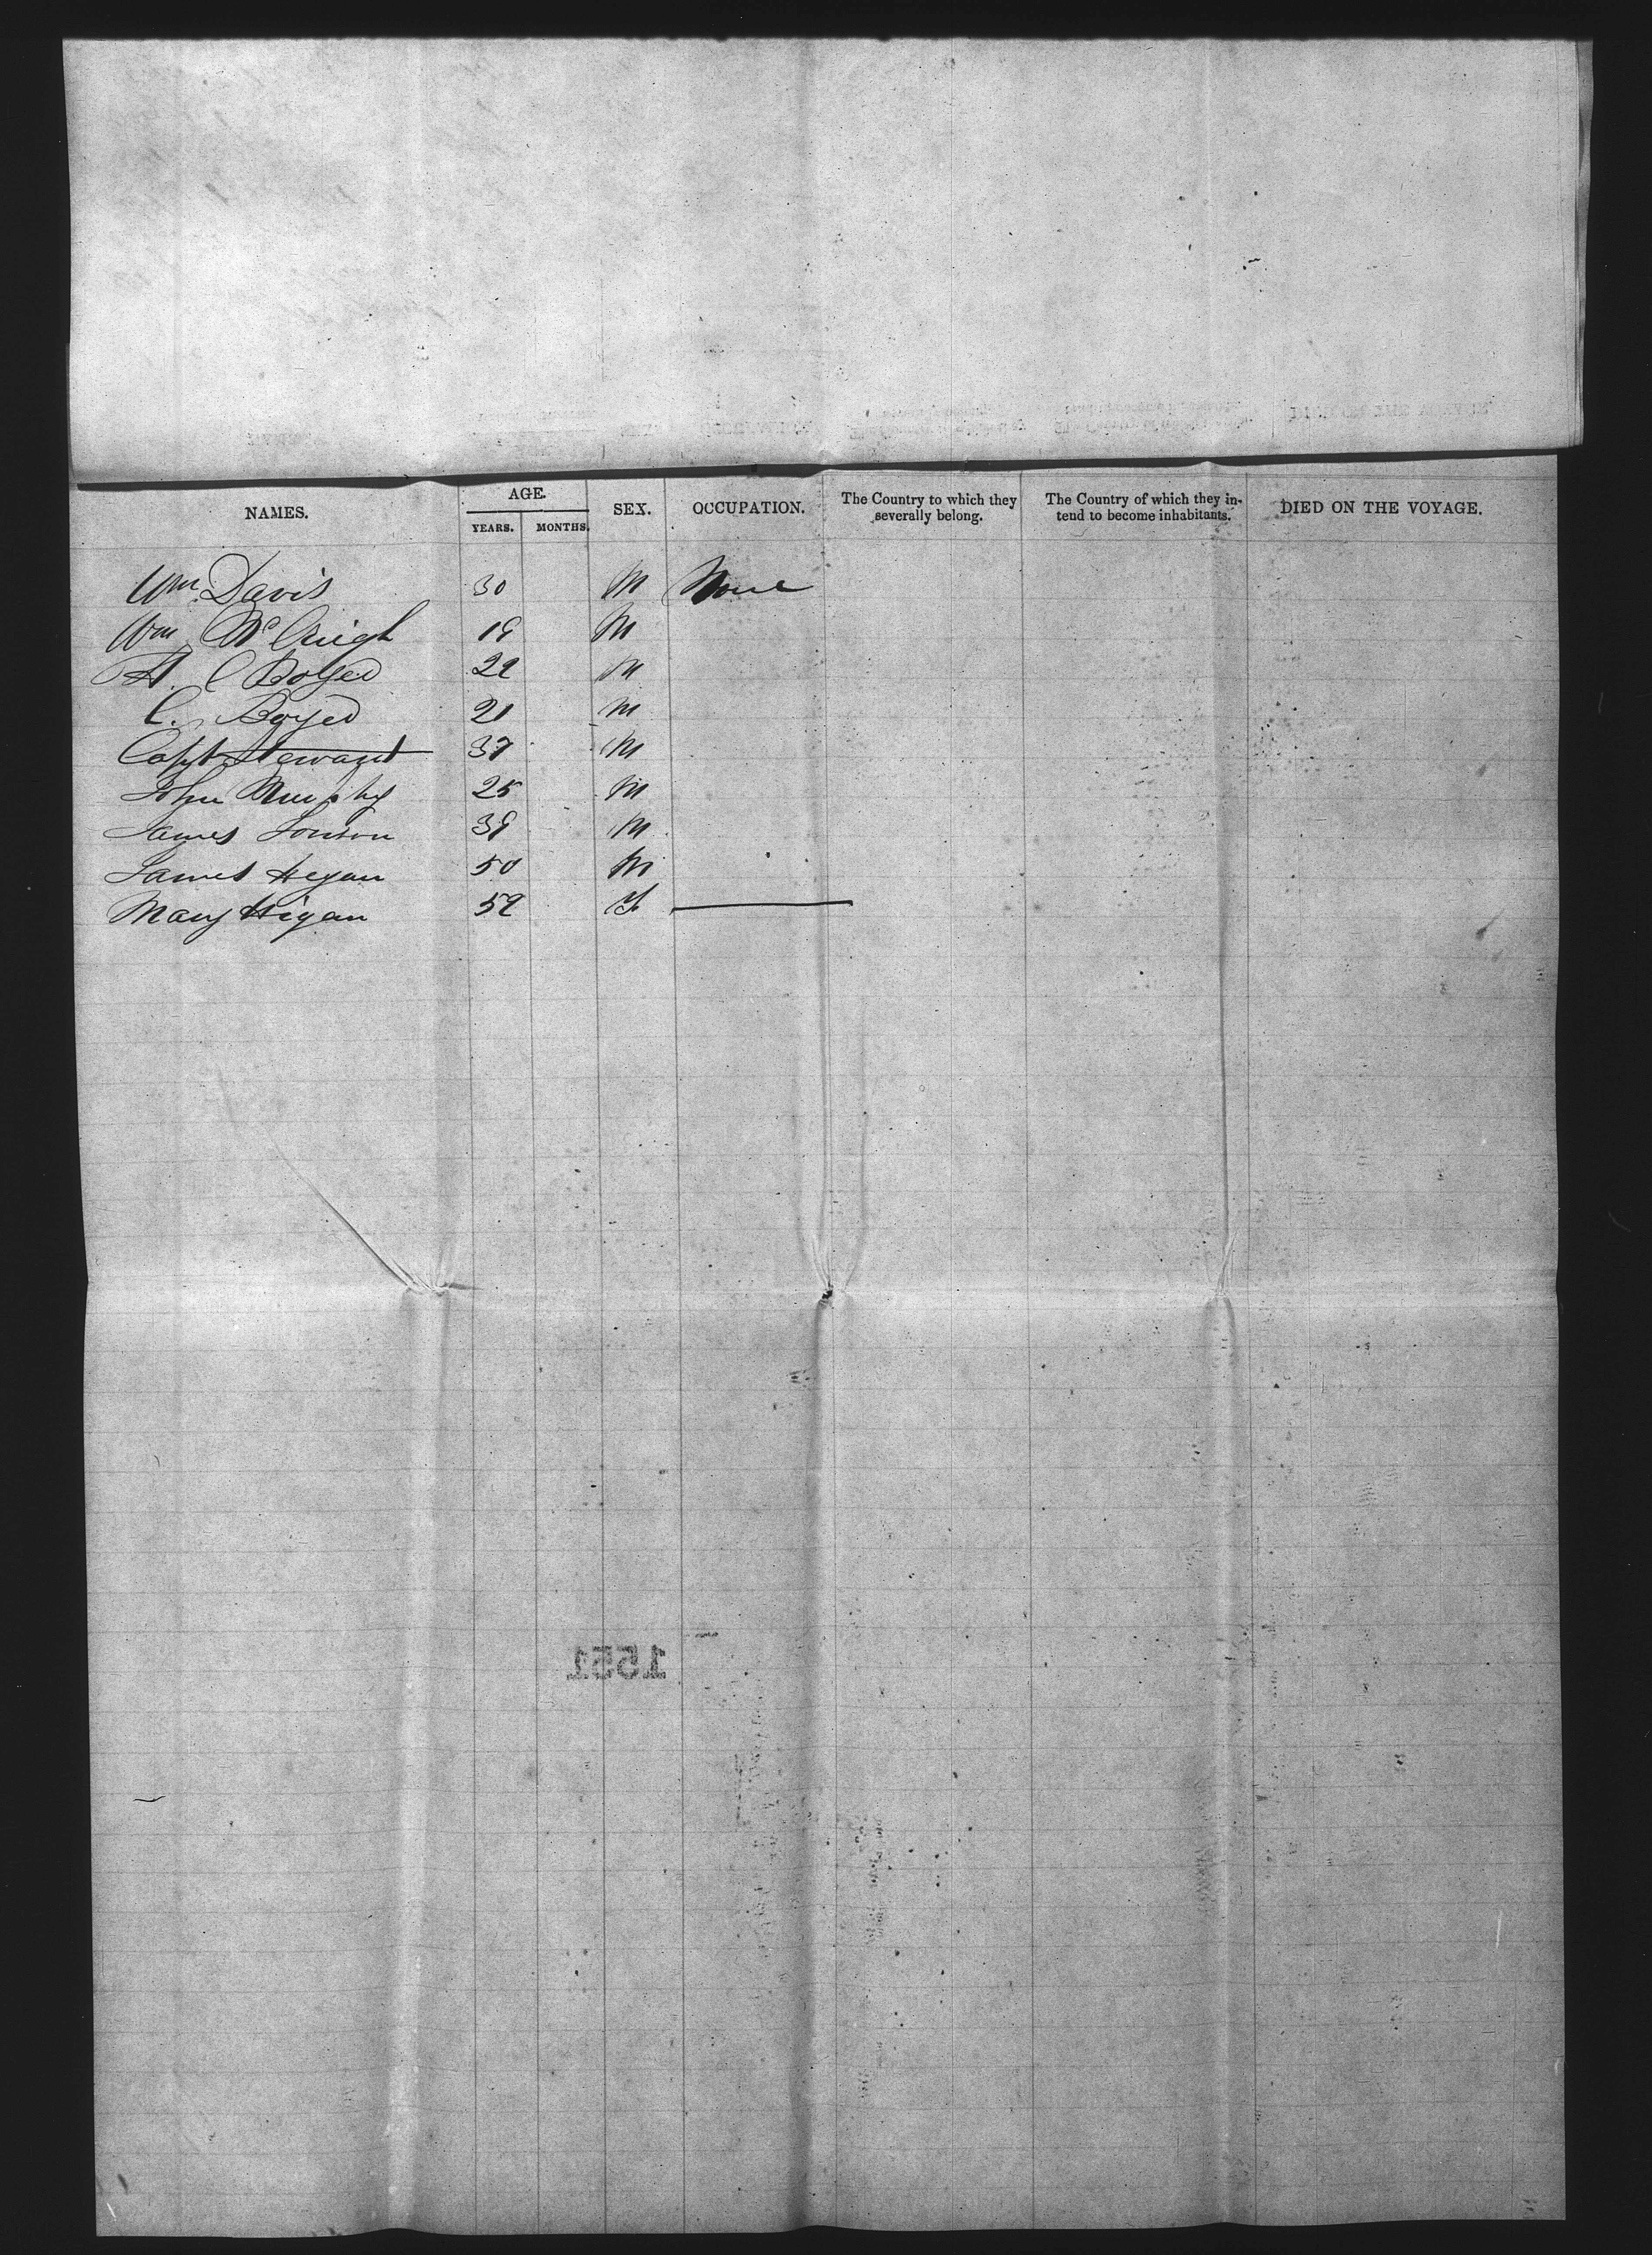 NAMES. AGE. YEARS. MONTHS. SEX. OCCUPATION. The Country to which they severally belong. The Country of which they intend to become inhabitants. DIED ON THE VOYAGE.
Wm Davis 30 M None
Wm Mc 19 M
A. C Boyed 22 M
C. Boyed 21 M
Capt Steward 37 M
John Murphy 25 M
James 39 M
James Hegan 50 M
Mary Higan 52 F
1551